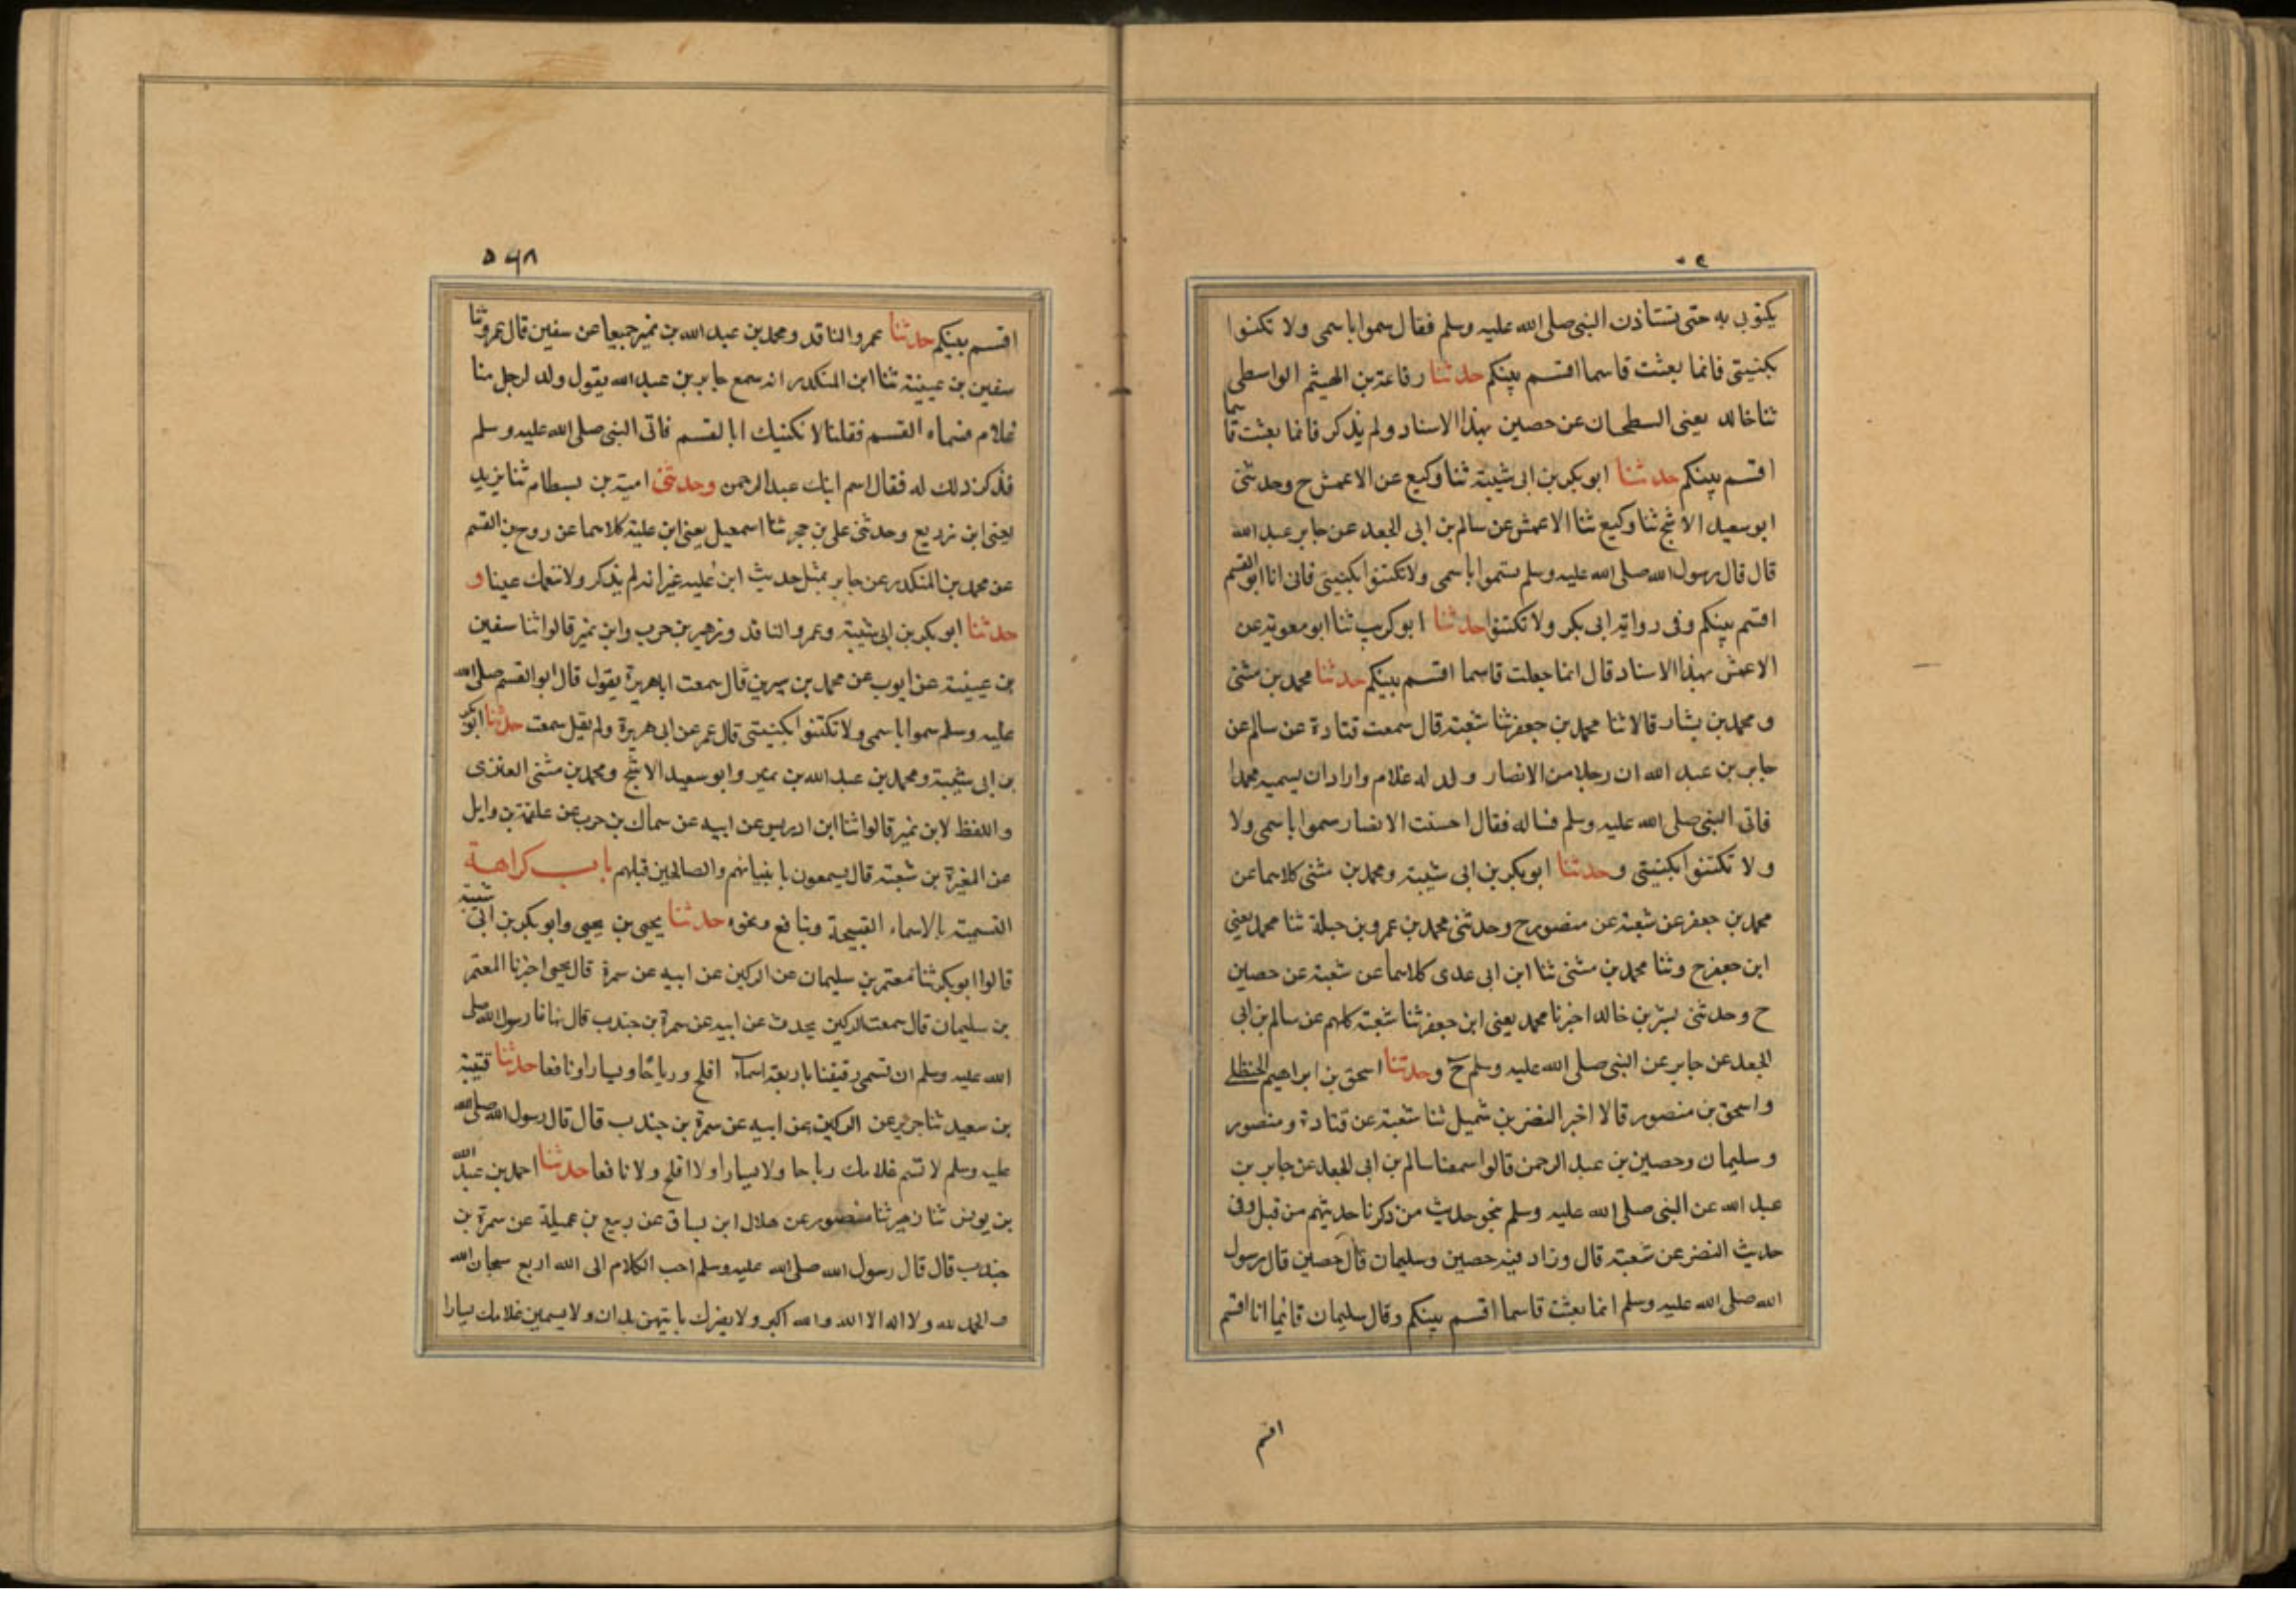 يكنون به حتى تستاذن النبي صلى الله عليه وسلم فقال سموا باسمي ولا تكنوا
بكنيتي فانما بعثت قاسما اقسم بينكم حدثنا رفاعة بن الهيثم الواسطي
ثنا خالد يعني السطحان عن حصين بهذا الاسناد ولم يذكر فانما بعثت قاسما
اقسم بينكم حدثنا ابو بكر بن ابى شيبة ثنا وكيع عن الاعمش ح وحدثني
ابو سعيد الاشج ثنا وكيع ثنا الاعمش عن سالم بن ابى الجعد عن جابر عبد الله
قال قال رسول الله صلى الله عليه وسلم تسموا باسمى ولا تكتنوا بكنيتى فانى انا ابو القسم
اقسم بينكم وفى رواية ابى بكر ولا تكتنوا حدثنا ابو كريب ثنا ابو معوية عن
الاعمش بهذا الاسناد قال انما جعلت قاسما اقسم بينكم حدثنا محمد بن مثنى
و محمد بن بشار قالا ثنا محمد بن جعفر ثنا شعبة قال سمعت قتادة عن سالم عن
جابر بن عبد الله ان رجلا من الانصار ولد له غلام واراد ان يسميه محمدا
فاتى النبي صلى الله عليه وسلم فساله فقال احسنت الانصار سموا باسمى ولا
ولا تكتنوا بكنيتى وحدثنا ابو بكر بن ابى شيبة ومحمد بن مثنى كلاهما عن
محمد بن جعفر عن شعبة عن منصور ح وحدثنى محمد بن عمرو بن جبلة ثنا محمد يعني
ابن جعفر ح وثنا محمد بن مثنى ثنا ابن ابى عدى كلاهما عن شعبة عن حصين
ح وحدثنى بشر بن خالد اخبرنا محمد يعنى ابن جعفر ثنا شعبة كلهم عن سالم بن ابى
الجعد عن جابر عن النبي صلى الله عليه وسلم ح وحدثنا اسحق بن ابراهيم الحنظلى
واسحق بن منصور قالا اخبر النضر بن شميل ثنا شعبة عن قتادة ومنصور
وسليمان وحصين بن عبد الرحمن قالوا سمعنا سالم بن ابى الجعد عن جابر بن
عبد الله عن النبي صلى الله عليه وسلم بنحو حديث من ذكرنا حديثهم من قبل وفى
حديث النضر عن شعبة قال وزاد فيه حصين وسليمان قال حصين قال رسول
الله صلى الله عليه وسلم انما بعثت قاسما اقسم بينكم وقال سليمان فانما انا اقسم
اقسم
٥٦٨
اقسم بينكم حدثنا عمرو الناقد ومحمد بن عبد الله بن نمير جميعا عن سفين قال عمرو ثنا
سفين بن عيينة ثنا ابن المنكدر انه سمع جابر بن عبد الله يقول ولد لرجل منا
غلام فسماه القسم فقلنا لا نكنيك ابا القسم فاتى النبي صلى الله عليه وسلم
فذكر ذلك له فقال اسم ابنك عبد الرحمن وحدثنى امية بن بسطام ثنا يزيد
يعنى ابن زريع وحدثنى على بن حجر ثنا اسمعيل يعنى ابن علية كلاهما عن روح بن القسم
عن محمد بن المنكدر عن جابر بمثل حديث ابن علية غير انه لم يذكر ولا ننعمك عينا و
حدثنا ابو بكر بن ابى شيبة وعمرو الناقد وزهير بن حرب وابن نمير قالوا ثنا سفين
بن عيينة عن ايوب عن محمد بن سيرين قال سمعت ابا هريرة يقول قال ابو القسم صلى الله
عليه وسلم سموا باسمى ولا تكتنوا بكنيتى قال عمر عن ابى هريرة ولم يقل سمعت حدثنا ابو بكر
بن ابى شيبة ومحمد بن عبد الله بن نمير وابو سعيد الاشج ومحمد بن مثنى العنزى
واللفظ لابن نمير قالوا ثنا ابن ادريس عن ابيه عن سماك بن حرب عن علقمة بن وايل
عن المغيرة بن شعبة قال يسمعون بانبيائهم والصالحين قبلهم باب كراهة
التسمية بالاسماء القبيحة وبنافع ونحوه حدثنا يحيى بن يحيى وابو بكر بن ابى شيبة
قالوا ابو بكر ثنا معتمر بن سليمان عن الركين عن ابيه عن سمرة قال يحيى اخبرنا المعتمر
بن سليمان قال سمعت الركين يحدث عن ابيه عن سمرة بن جندب قال نهانا رسول الله صلى
الله عليه وسلم ان نسمى رقيقنا باربعة اسماء افلح ورباحا ويسارا ونافعا حدثنا قتيبة
بن سعيد ثنا جرير عن الركين عن ابيه عن سمرة بن جندب قال قال رسول الله صلى الله
عليه وسلم لا تسم غلامك رباحا ولا يسارا ولا افلح ولا نافعا حدثنا احمد بن عبد الله
بن يونس ثنا زهير ثنا منصور عن هلال ابن يساف عن ربيع بن عميلة عن سمرة بن
جندب قال قال رسول الله صلى الله عليه وسلم احب الكلام الى الله اربع سبحان الله
والحمد لله ولا اله الا الله والله اكبر ولا يضرك بايتهن بدات ولا يسمين غلامك يسارا